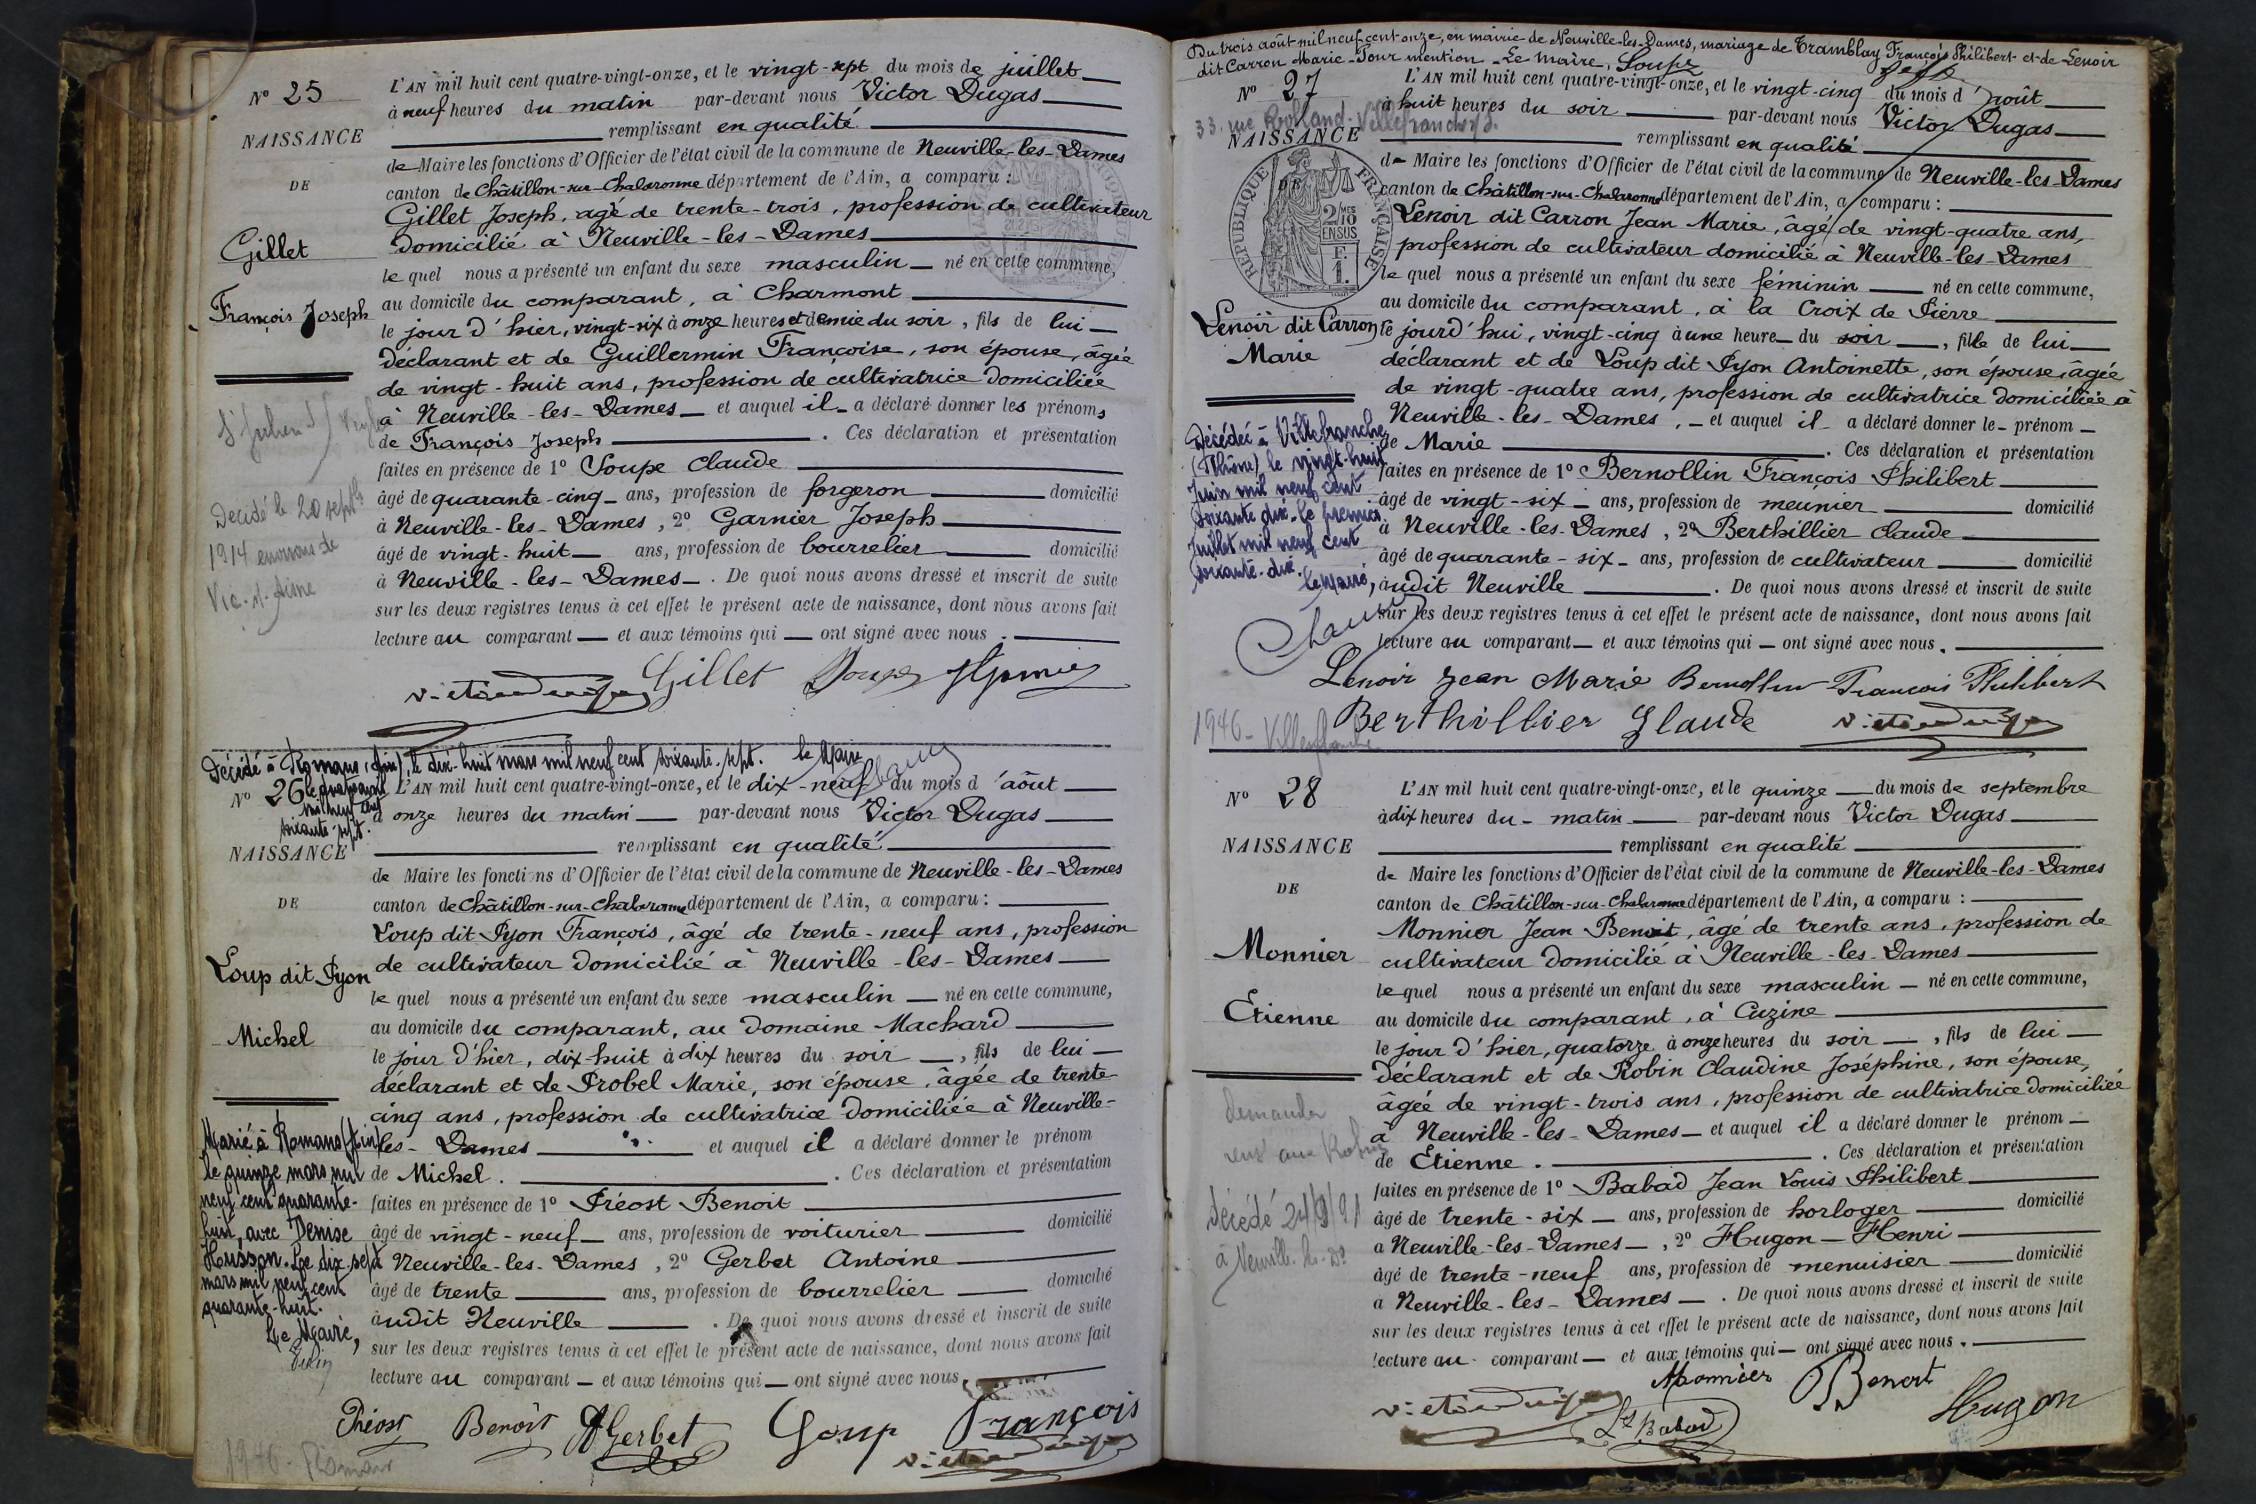 N° 25
NAISSANCE
DE
Gillet
François Joseph
Décédé le 20 septbre
1914 environs de
Vic-s-Aisne
L'AN mil huit cent quatre-vingt-onze, et le vingt-sept du mois de juillet
à neuf heures du matin par-devant nous Victor Dugas
remplissant en qualité
de Maire les fonctions d'Officier de l'état civil de la commune de Neuville-les-Dames
canton de Châtillon-sur-Chalaronne département de l'Ain, a comparu :
Gillet Joseph, agé de trente-trois, profession de cultivateur
domicilié à Neuville-les-Dames
le quel nous a présenté un enfant du sexe masculin né en cette commune,
au domicile du comparant, à Charmont
le jour d'hier, vingt-six à onze heures et demie du soir, fils de lui
déclarant et de Guillermin Françoise, son épouse, âgée
de vingt-huit ans, profession de cultivatrice domiciliée
à Neuville-les-Dames et auquel il a déclaré donner les prénoms
de François Joseph . Ces déclaration et présentation
faites en présence de 1° Soupe Claude
âgé de quarante-cinq ans, profession de forgeron domicilié
à Neuville-les-Dames, 2° Garnier Joseph
âgé de vingt-huit ans, profession de bourrelier domicilié
à Neuville-les-Dames . De quoi nous avons dressé et inscrit de suite
sur les deux registres tenus à cet effet le présent acte de naissance, dont nous avons fait
lecture au comparant et aux témoins qui ont signé avec nous .
Victor Dugas Gillet Soupe JGarnier
Décédé à Romans (Ain), le dix-huit mars mil neuf cent soixante-sept. le Maire
N° 26
mil neuf cent
soixante-sept.
NAISSANCE
DE
Loup dit Pyon
Michel
Marié à Romans (Ain)
le quinze mars mil
neuf cent quarante-
huit, avec Denise
Husson. Le dix-sept
mars mil neuf cent
quarante-huit.
Le Maire,
L'AN mil huit cent quatre-vingt-onze, et le dix-neuf du mois d'août
à onze heures du matin par-devant nous Victor Dugas
remplissant en qualité
de Maire les fonctions d'Officier de l'état civil de la commune de Neuville-les-Dames
canton de Châtillon-sur-Chalaronne département de l'Ain, a comparu :
Loup dit Pyon François, âgé de trente-neuf ans, profession
de cultivateur domicilié à Neuville-les-Dames
le quel nous a présenté un enfant du sexe masculin né en cette commune,
au domicile du comparant, au domaine Machard
le jour d'hier, dix-huit à dix heures du soir , fils de lui
déclarant et de Probel Marie, son épouse, âgée de trente-
cinq ans, profession de cultivatrice domiciliée à Neuville-
les-Dames et auquel il a déclaré donner le prénom
de Michel . Ces déclaration et présentation
faites en présence de 1° Préost Benoit
âgé de vingt-neuf ans, profession de voiturier domicilié
à Neuville-les-Dames, 2° Gerbet Antoine
âgé de trente ans, profession de bourrelier domicilié
audit Neuville . De quoi nous avons dressé et inscrit de suite
sur les deux registres tenus à cet effet le présent acte de naissance, dont nous avons fait
lecture au comparant et aux témoins qui ont signé avec nous
Préost Benoît AGerbet Loup François
Victor Dugas
1946 - Romans
Du trois août mil neuf cent onze, en mairie de Neuville-les-Dames, mariage de Tramblay François Philibert et de Lenoir
dit Carron Marie - Pour mention - Le Maire, Soupe
N° 27
33, rue Rolland - Villefranche s/S.
NAISSANCE
DE
RÉPUBLIQUE FRANÇAISE
2/10 MES
EN SUS
F.
1.
Lenoir dit Carron
Marie
Décédée à Villefranche
(Rhône) le vingt-huit
Juin mil neuf cent
soixante dix. le premier
Juillet mil neuf cent
soixante-dix.
le Maire,
L'AN mil huit cent quatre-vingt-onze, et le vingt-cinq du mois d'août
à huit heures du soir par-devant nous Victor Dugas
remplissant en qualité
de Maire les fonctions d'Officier de l'état civil de la commune de Neuville-les-Dames
canton de Châtillon-sur-Chalaronne département de l'Ain, a comparu :
Lenoir dit Carron Jean Marie, âgé de vingt-quatre ans,
profession de cultivateur domicilié à Neuville-les-Dames
le quel nous a présenté un enfant du sexe féminin né en cette commune,
au domicile du comparant, à la Croix de Pierre
le jourd'hui, vingt-cinq à une heure du soir , fille de lui
déclarant et de Loup dit Pyon Antoinette, son épouse, âgée
de vingt-quatre ans, profession de cultivatrice domiciliée à
Neuville-les-Dames, et auquel il a déclaré donner le prénom
de Marie . Ces déclaration et présentation
faites en présence de 1° Bernollin François Philibert
âgé de vingt-six ans, profession de meunier domicilié
à Neuville-les-Dames, 2° Berthillier Claude
âgé de quarante-six ans, profession de cultivateur domicilié
audit Neuville . De quoi nous avons dressé et inscrit de suite
sur les deux registres tenus à cet effet le présent acte de naissance, dont nous avons fait
lecture au comparant et aux témoins qui ont signé avec nous .
Lenoir Jean Marie Bernollin François Philibert
Berthillier Glaude Victor Dugas
1946 - Villefranche
N° 28
NAISSANCE
DE
Monnier
Etienne
demander
Décédé 24/9/91
à Neuville-les-Des
L'AN mil huit cent quatre-vingt-onze, et le quinze du mois de septembre
à dix heures du matin par-devant nous Victor Dugas
remplissant en qualité
de Maire les fonctions d'Officier de l'état civil de la commune de Neuville-les-Dames
canton de Châtillon-sur-Chalaronne département de l'Ain, a comparu :
Monnier Jean Benoit, âgé de trente ans, profession de
cultivateur domicilié à Neuville-les-Dames
le quel nous a présenté un enfant du sexe masculin né en cette commune,
au domicile du comparant, à Cuzine
le jour d'hier, quatorze à onze heures du soir , fils de lui
déclarant et de Robin Claudine Joséphine, son épouse,
âgée de vingt-trois ans, profession de cultivatrice domiciliée
à Neuville-les-Dames et auquel il a déclaré donner le prénom
de Etienne . Ces déclaration et présentation
faites en présence de 1° Babad Jean Louis Philibert
âgé de trente-six ans, profession de horloger domicilié
à Neuville-les-Dames , 2° Hugon Henri
âgé de trente-neuf ans, profession de menuisier domicilié
à Neuville-les-Dames . De quoi nous avons dressé et inscrit de suite
sur les deux registres tenus à cet effet le présent acte de naissance, dont nous avons fait
lecture au comparant et aux témoins qui ont signé avec nous .
Monnier Benoit
Victor Dugas Ls Babad Hugon